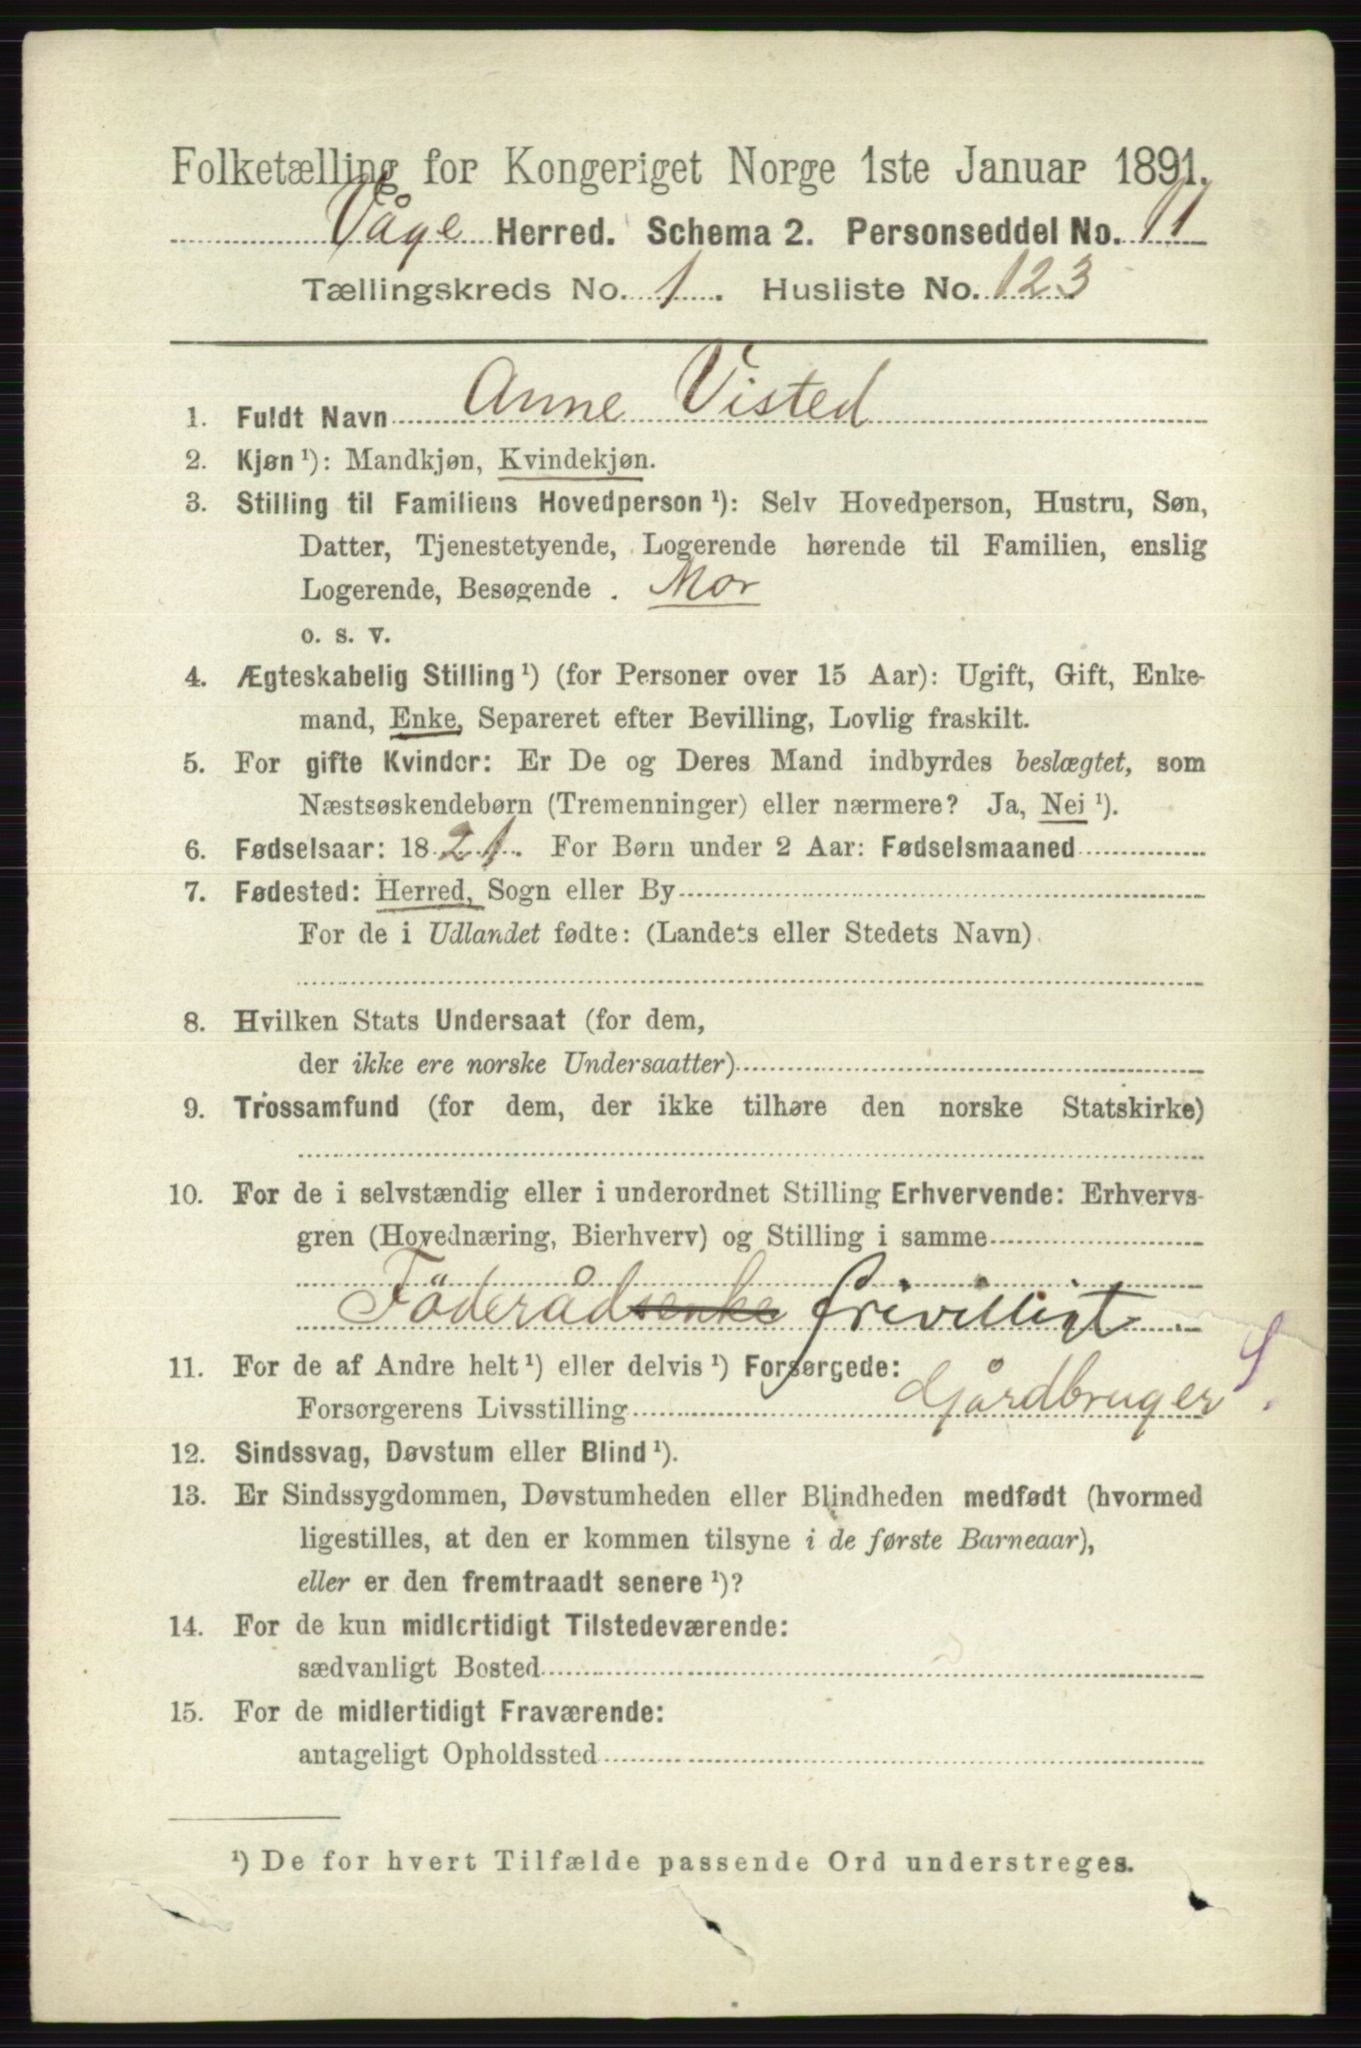 Folketælling for Kongeriget Norge 1ste Januar 1891.
Våge Herred. Schema 2. Personseddel No. 11
Tællingskreds No. 1. Husliste No. 123
1. Fuldt Navn Anne Visted
2. Kjøn ¹): Mandkjøn, Kvindekjøn.
3. Stilling til Familiens Hovedperson ¹): Selv Hovedperson, Hustru, Søn,
Datter, Tjenestetyende, Logerende hørende til Familien, enslig
Logerende, Besøgende . Mor
o. s. v.
4. Ægteskabelig Stilling ¹) (for Personer over 15 Aar): Ugift, Gift, Enke-
mand, Enke, Separeret efter Bevilling, Lovlig fraskilt.
5. For gifte Kvinder: Er De og Deres Mand indbyrdes beslægtet, som
Næstsøskendebørn (Tremenninger) eller nærmere? Ja, Nei ¹).
6. Fødselsaar: 1821. For Børn under 2 Aar: Fødselsmaaned
7. Fødested: Herred, Sogn eller By
For de i Udlandet fødte: (Landets eller Stedets Navn)
8. Hvilken Stats Undersaat (for dem,
der ikke ere norske Undersaatter)
9. Trossamfund (for dem, der ikke tilhøre den norske Statskirke)
10. For de i selvstændig eller i underordnet Stilling Erhvervende: Erhvervs-
gren (Hovednæring, Bierhverv) og Stilling i samme
Föderådsenke frivilligt
11. For de af Andre helt ¹) eller delvis ¹) Forsørgede:
Forsørgerens Livsstilling Gårdbruger S.
12. Sindssvag, Døvstum eller Blind ¹).
13. Er Sindssygdommen, Døvstumheden eller Blindheden medfødt (hvormed
ligestilles, at den er kommen tilsyne i de første Barneaar),
eller er den fremtraadt senere ¹)?
14. For de kun midlertidigt Tilstedeværende:
sædvanligt Bosted
15. For de midlertidigt Fraværende:
antageligt Opholdssted
¹) De for hvert Tilfælde passende Ord understreges.